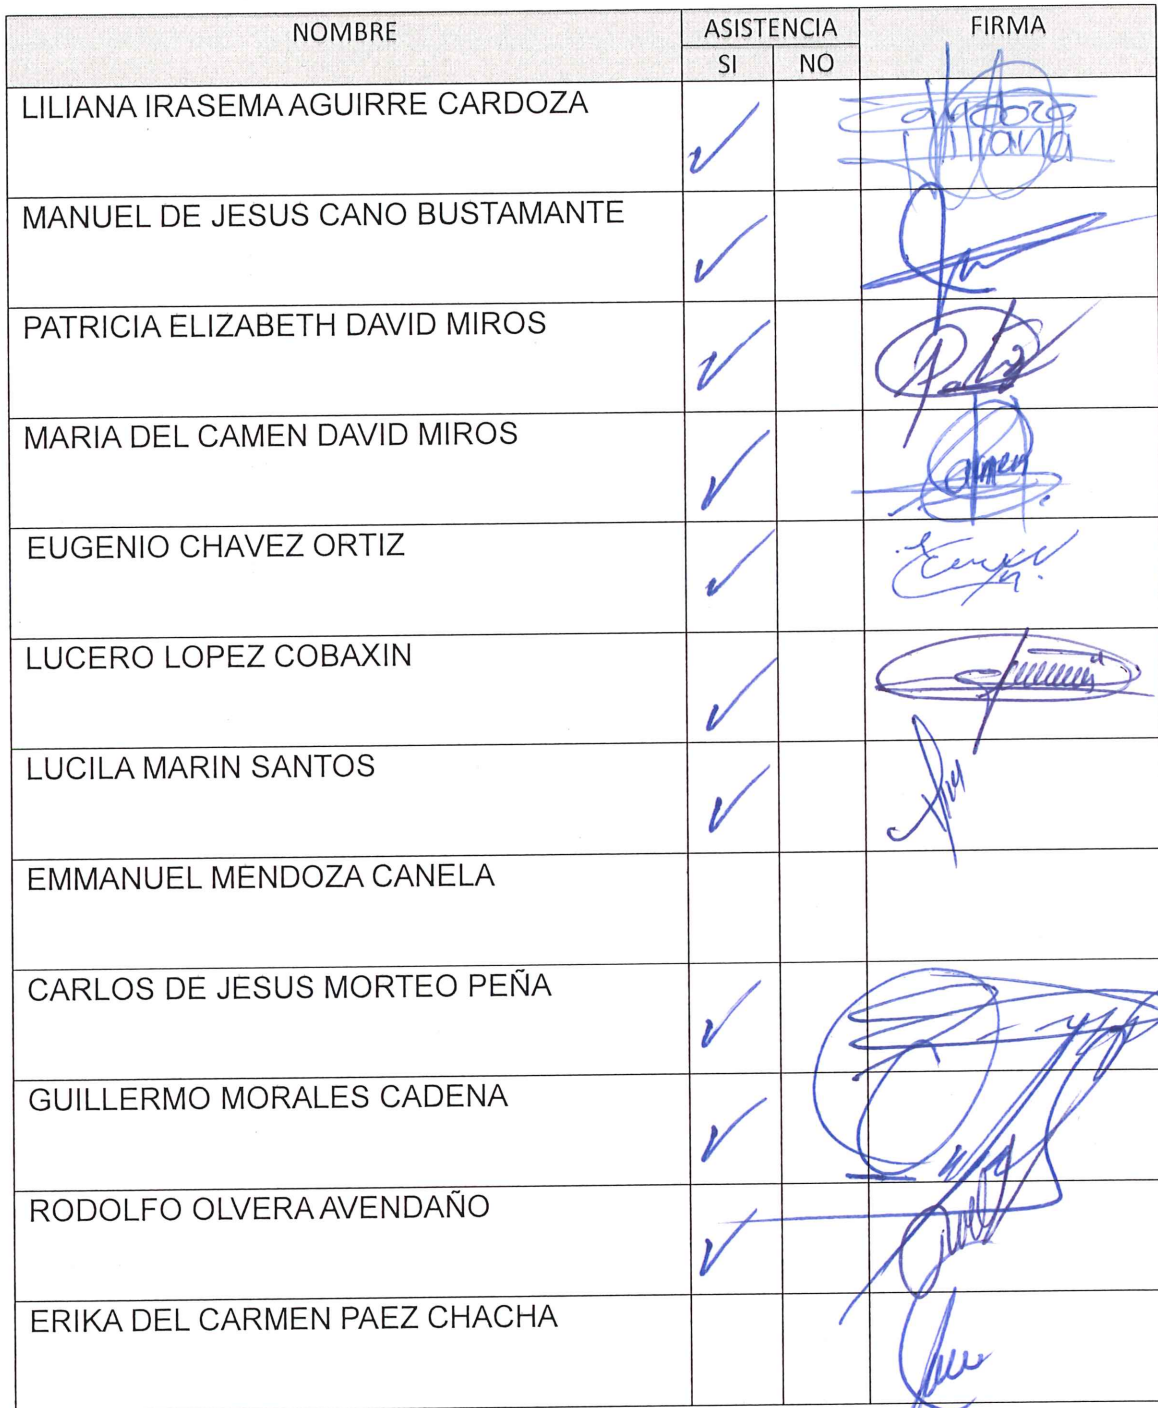 NOMBRE ASISTENCIA FIRMA
SI NO
LILIANA IRASEMA AGUIRRE CARDOZA ✓ Cardoza
Liliana
MANUEL DE JESUS CANO BUSTAMANTE ✓
PATRICIA ELIZABETH DAVID MIROS ✓
MARIA DEL CAMEN DAVID MIROS ✓ Carmen
EUGENIO CHAVEZ ORTIZ ✓
LUCERO LOPEZ COBAXIN ✓
LUCILA MARIN SANTOS ✓
EMMANUEL MENDOZA CANELA
CARLOS DE JESUS MORTEO PEÑA ✓
GUILLERMO MORALES CADENA ✓
RODOLFO OLVERA AVENDAÑO ✓
ERIKA DEL CARMEN PAEZ CHACHA